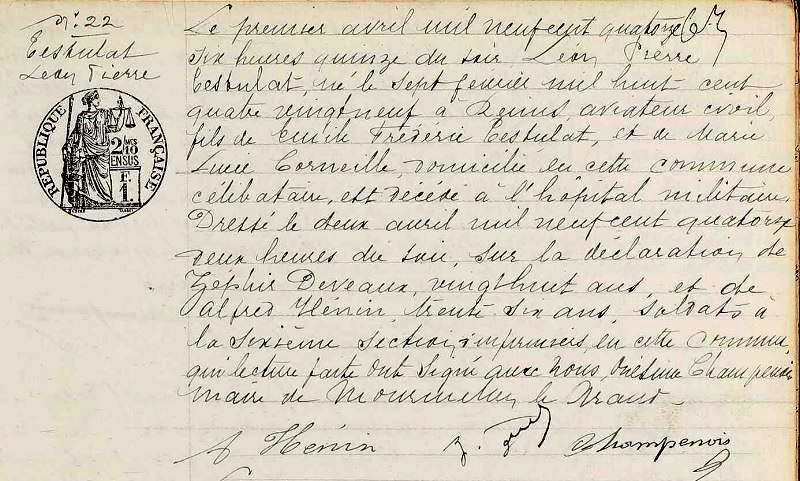 N°. 22
Testulat
Léon Pierre
RÉPUBLIQUE FRANÇAISE
2/10 ENSUS
F.
1.
Le premier avril mil neufcent quatorze
six heures quinze du soir Léon Pierre
Testulat, né le sept février mil huit cent
quatre vingt neuf à Reims, aviateur civil,
fils de Emile Frédéric Testulat, et de Marie
Lucie Corneille, domicilié en cette commune
célibataire, est décédé à l'hôpital militaire.
Dressé le deux avril mil neufcent quatorze
deux heures du soir, sur la déclaration de
Zéphir Deveaux, vingt huit ans, et de
Alfred Hénin, trente six ans, soldats à
la sixième section, infirmiers, en cette commune,
qui lecture faite ont signé avec Nous, Onésime Champenois
maire de Mourmelon le Grand.
A Hénin
Champenois